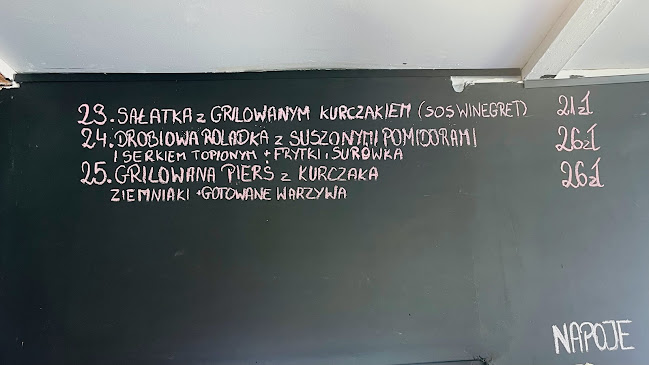 23. SAŁATKA z GRILOWANYM KURCZAKIEM (SOS WINEGRET) 21zł
24. DROBIOWA ROLADKA z SUSZONYMI POMIDORAMI 26zł
I SERKIEM TOPIONYM + FRYTKI i SURÓWKA
25. GRILOWANA PIERS z KURCZAKA 26zł
ZIEMNIAKI + GOTOWANE WARZYWA
NAPOJE